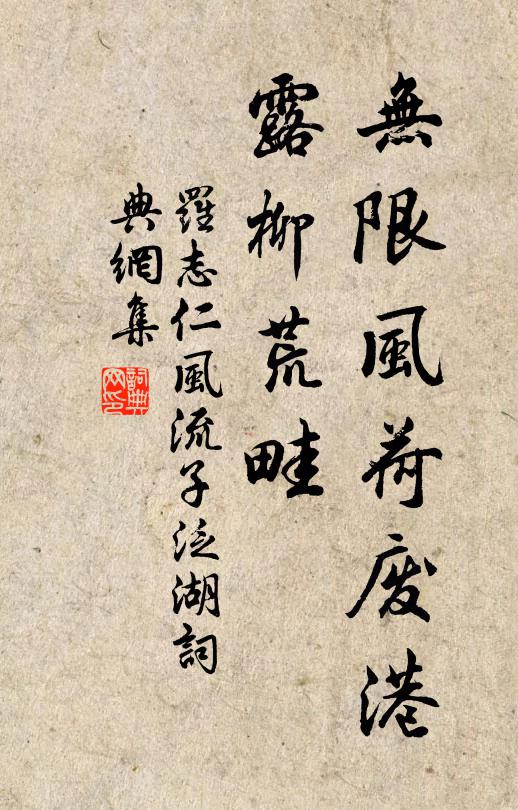 無限風荷廢港
露柳荒畦
羅志仁風流子泛湖詞
典網集
詞典
网印